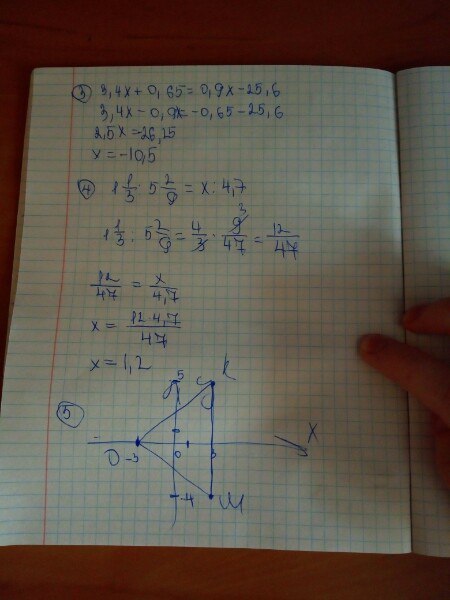 ③ 3,4x + 0,65 = 0,9x - 25,6
3,4x - 0,9x = -0,65 - 25,6
2,5x = -26,25
x = -10,5
④ 1 1/3 : 5 2/9 = x : 4,7
1 1/3 : 5 2/9 = 4/3 · 9/47 = 12/47
3
12/47 = x/4,7
x = 12·4,7/47
x = 1,2
⑤
y 5 C K
X
O -3 0 3
-4 M